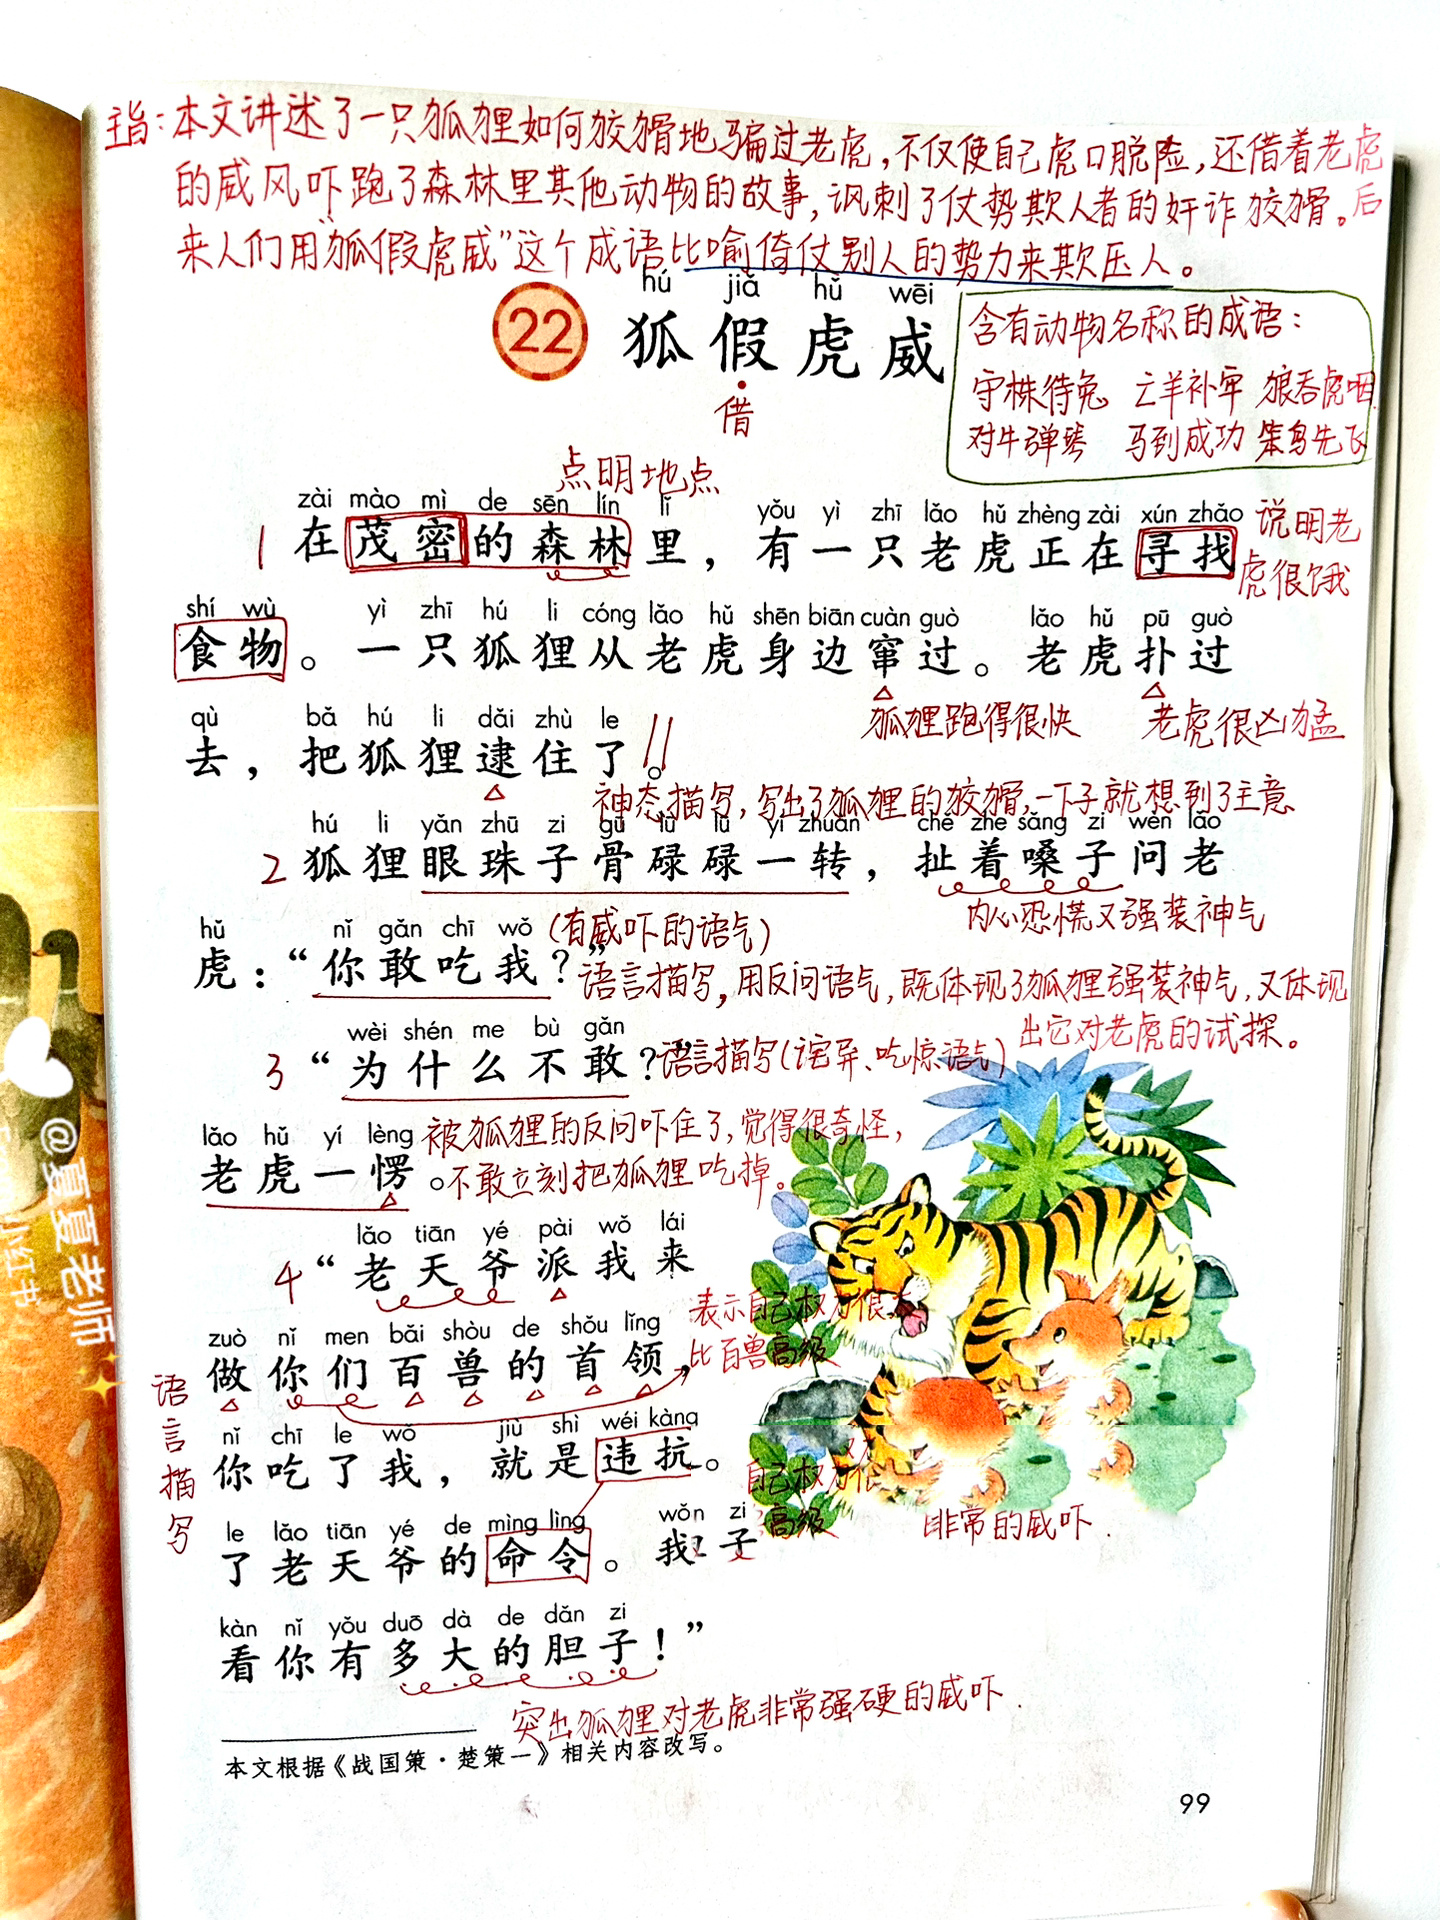 主旨：本文讲述了一只狐狸如何狡猾地骗过老虎，不仅使自己虎口脱险，还借着老虎
的威风吓跑了森林里其他动物的故事，讽刺了仗势欺人者的奸诈狡猾。后
来人们用“狐假虎威”这个成语比喻倚仗别人的势力来欺压人。
hú jiǎ hǔ wēi
22 狐假虎威
借
含有动物名称的成语：
守株待兔 亡羊补牢 狼吞虎咽
对牛弹琴 马到成功 笨鸟先飞
点明地点
zài mào mì de sēn lín lǐ yǒu yì zhī lǎo hǔ zhèng zài xún zhǎo
1 在茂密的森林里，有一只老虎正在寻找
说明老
虎很饿
shí wù yì zhī hú li cóng lǎo hǔ shēn biān cuàn guò lǎo hǔ pū guò
食物。一只狐狸从老虎身边窜过。老虎扑过
狐狸跑得很快 老虎很凶猛
qù bǎ hú li dǎi zhù le
去，把狐狸逮住了。
神态描写，写出了狐狸的狡猾，一下子就想到了主意
hú li yǎn zhū zi gū lù lù yì zhuàn chě zhe sǎng zi wèn lǎo
2 狐狸眼珠子骨碌碌一转，扯着嗓子问老
内心恐慌又强装神气
hǔ nǐ gǎn chī wǒ
(有威吓的语气)
虎：“你敢吃我？”
语言描写，用反问语气，既体现了狐狸强装神气，又体现
出它对老虎的试探。
wèi shén me bù gǎn
3 “为什么不敢？”
语言描写(诧异、吃惊语气)
lǎo hǔ yí lèng
老虎一愣。
被狐狸的反问吓住了，觉得很奇怪，
不敢立刻把狐狸吃掉。
lǎo tiān yé pài wǒ lái
4 “老天爷派我来
表示自己权力很大
比百兽高级
zuò nǐ men bǎi shòu de shǒu lǐng
做你们百兽的首领，
语言描写
nǐ chī le wǒ jiù shì wéi kàng
你吃了我，就是违抗。
自己权力很
高级
le lǎo tiān yé de mìng lìng wǒ zi
了老天爷的命令。我 子
非常的威吓.
kàn nǐ yǒu duō dà de dǎn zi
看你有多大的胆子！”
突出狐狸对老虎非常强硬的威吓.
本文根据《战国策·楚策一》相关内容改写。
99
@夏夏老师
小红书